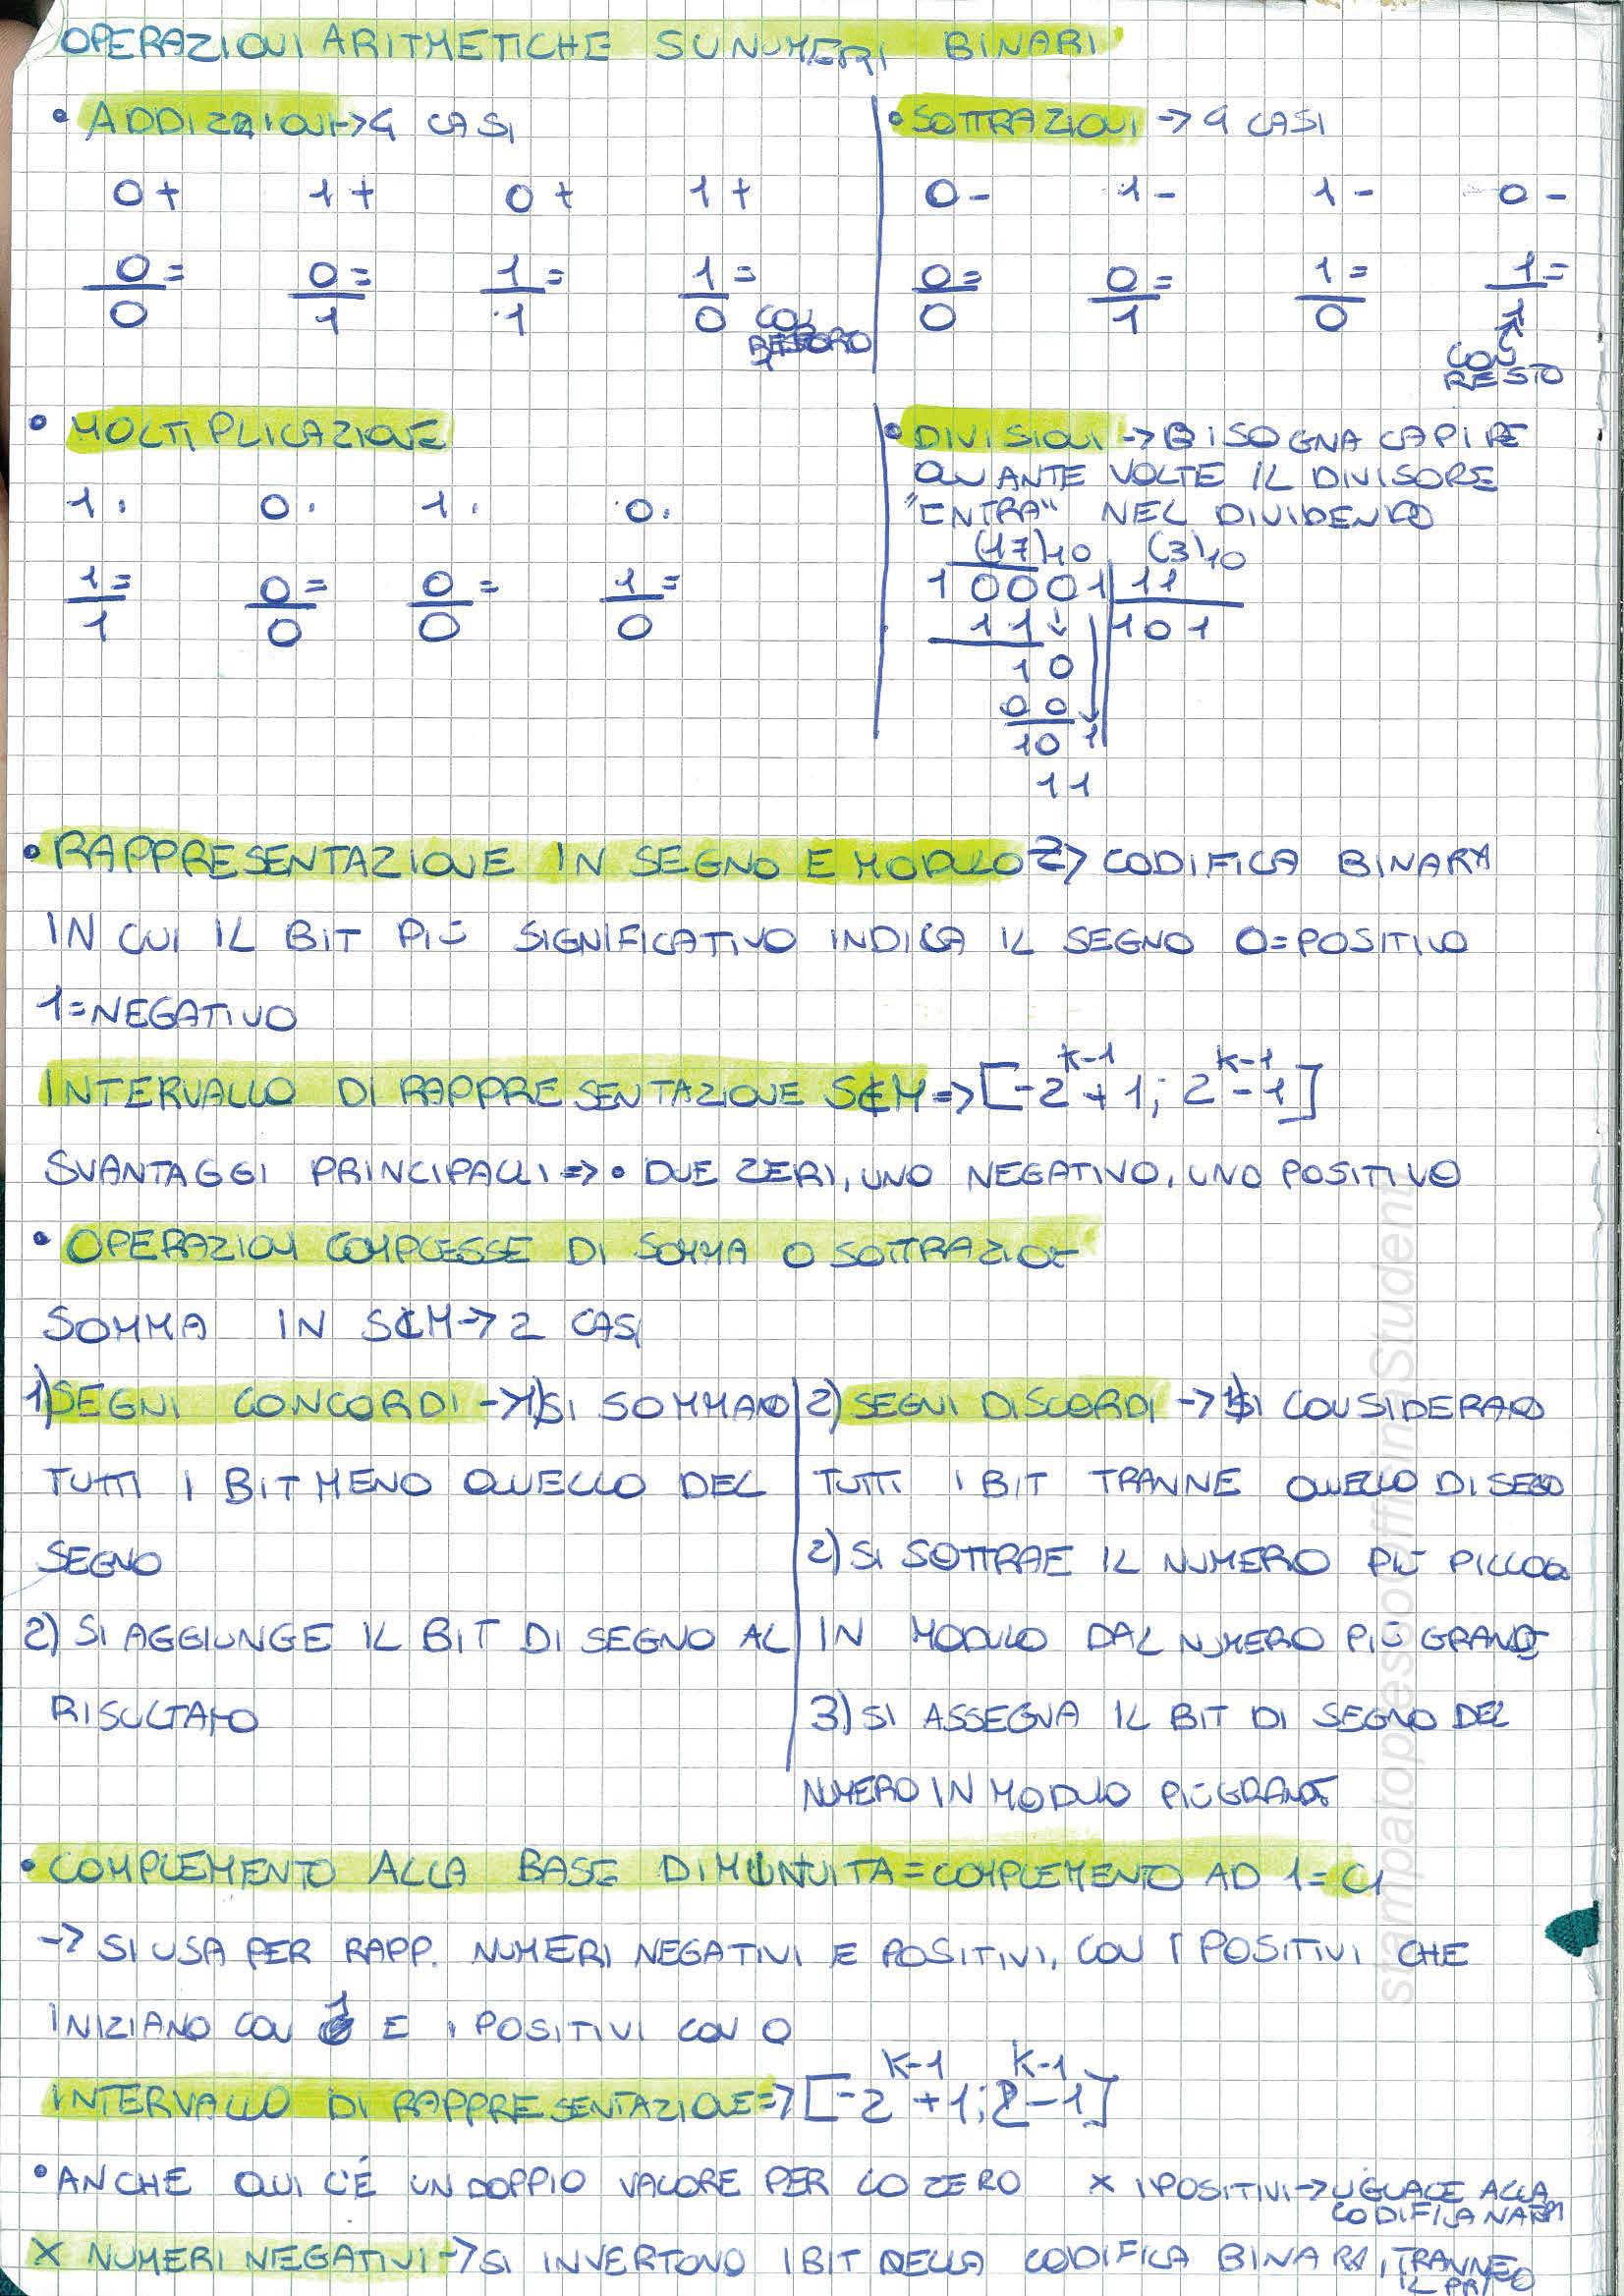 OPERAZIONI ARITMETICHE SU NUMERI BINARI
• ADDIZIONI → 4 CASI
0+ 1+ 0+ 1+
0= 0= 1= 1=
0 1 1 0 CON
• SOTTRAZIONI → 4 CASI
0- 1- 1- 0-
0= 0= 1= 1=
0 1 0 1
CON
RESTO
• MOLTIPLICAZIONE
1. 0. 1. 0.
1= 0= 0= 1=
1 0 0 0
• DIVISIONI → BISOGNA CAPIRE
QUANTE VOLTE IL DIVISORE
"ENTRA" NEL DIVIDENDO
(17)10 (3)10
10001 11
11↓ 101
10
00
101
11
• RAPPRESENTAZIONE IN SEGNO E MODULO => CODIFICA BINARIA
IN CUI IL BIT PIÙ SIGNIFICATIVO INDICA IL SEGNO 0=POSITIVO
1=NEGATIVO
INTERVALLO DI RAPPRESENTAZIONE S&M => [-2^k-1 +1; 2^k-1 -1]
SVANTAGGI PRINCIPALI => • DUE ZERI, UNO NEGATIVO, UNO POSITIVO
• OPERAZIONI COMPLESSE DI SOMMA O SOTTRAZIONE
SOMMA IN S&M → 2 CASI
1) SEGNI CONCORDI → 1) SI SOMMANO
TUTTI I BIT MENO QUELLO DEL
SEGNO
2) SI AGGIUNGE IL BIT DI SEGNO AL
RISULTATO
2) SEGNI DISCORDI → 1) SI CONSIDERANO
TUTTI I BIT TRANNE QUELLO DI SEGNO
2) SI SOTTRAE IL NUMERO PIÙ PICCOLO
IN MODULO DAL NUMERO PIÙ GRANDE
3) SI ASSEGNA IL BIT DI SEGNO DEL
NUMERO IN MODULO PIÙ GRANDE
• COMPLEMENTO ALLA BASE DIMINUITA = COMPLEMENTO AD 1 = C1
→ SI USA PER RAPP. NUMERI NEGATIVI E POSITIVI, CON I POSITIVI CHE
INIZIANO CON 1 E I POSITIVI CON 0
INTERVALLO DI RAPPRESENTAZIONE => [-2^k-1 +1; 2^k-1 -1]
• ANCHE QUI C'È UN DOPPIO VALORE PER LO ZERO X I POSITIVI → UGUALE ALLA
CODIFICA
X NUMERI NEGATIVI → SI INVERTONO I BIT DELLA CODIFICA BINARIA, TRANNE
IL
stampatopessoOfficinaStudenti